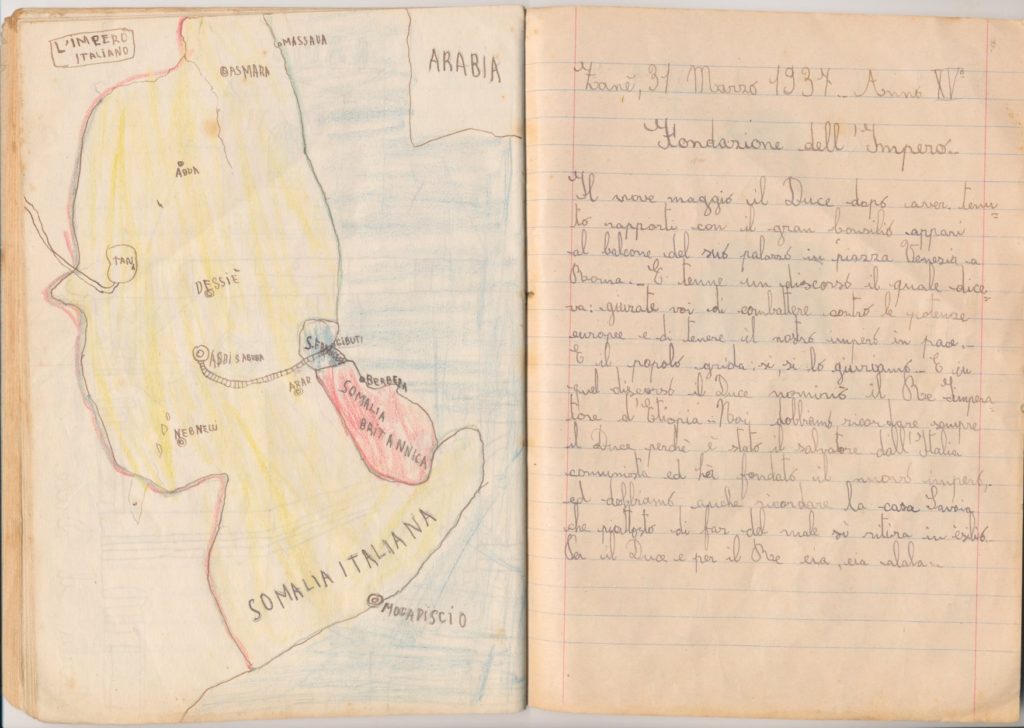 L'IMPERO
ITALIANO
MASSAUA
ASMARA
ARABIA
ADUA
TANA
DESSIÈ
GIBUTI
ADDIS ABEBA
ARAR
BERBERA
SOMALIA
BRITANNICA
SOMALIA ITALIANA
MOGADISCIO
Zanè, 31 Marzo 1937 - Anno XVº
Fondazione dell'Impero -
Il nove maggio il Duce dopo aver tenu-
to rapporti con il gran consilio appari
al balcone del suo palazzo in piazza Venezia a
Roma. - E tenne un discorso il quale dice-
va: giurate voi di combattere contro le potenze
europee e di tenere il nostro impero in pace. -
E il popolo grida: si, si lo giuriamo - E in
quel discorso il Duce nominò il Re Impera-
tore d'Etiopia - Noi dobbiamo ricordare sempre
il Duce perchè è stato il salvatore dall'Italia
comunista ed hà fondato il nuovo impero,
ed dobbiamo anche ricordare la casa Savoia
che piutosto di far del male si ritira in esilio.
Per il Duce e per il Re eia, eia alala -